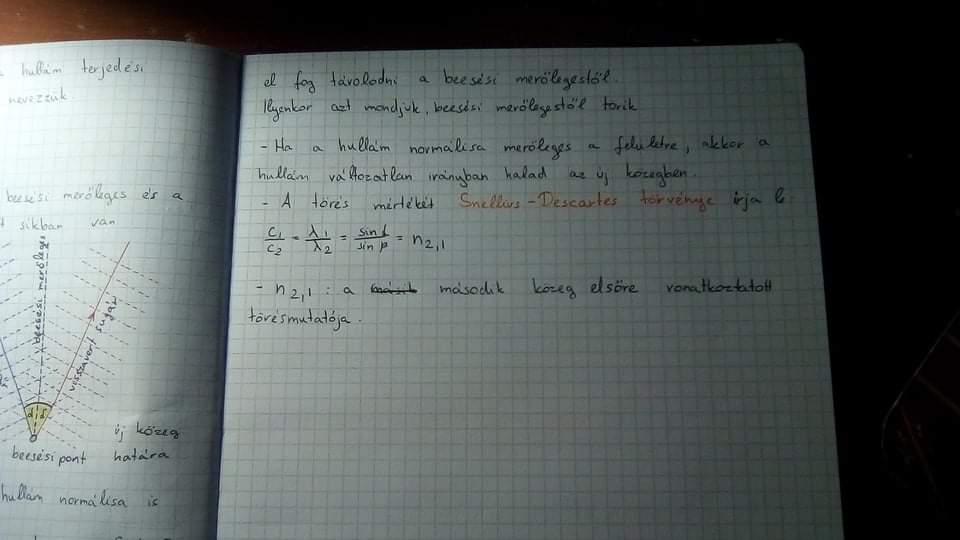 hullám terjedési
nevezzük.
beesési merőleges és a
síkban van
beesési merőleges
visszavert sugár
új közeg
beesési pont határa
hullám normálisa is
el fog távolodni a beesési merőlegestől.
Ilyenkor azt mondjuk, beesési merőlegestől törik
- Ha a hullám normálisa merőleges a felületre, akkor a
hullám változatlan irányban halad az új közegben.
- A törés mértékét Snellius-Descartes törvénye írja l
c₁/c₂ = λ₁/λ₂ = sin α/sin β = n₂,₁
- n₂,₁ : a második közeg elsőre vonatkoztatott
törésmutatója.